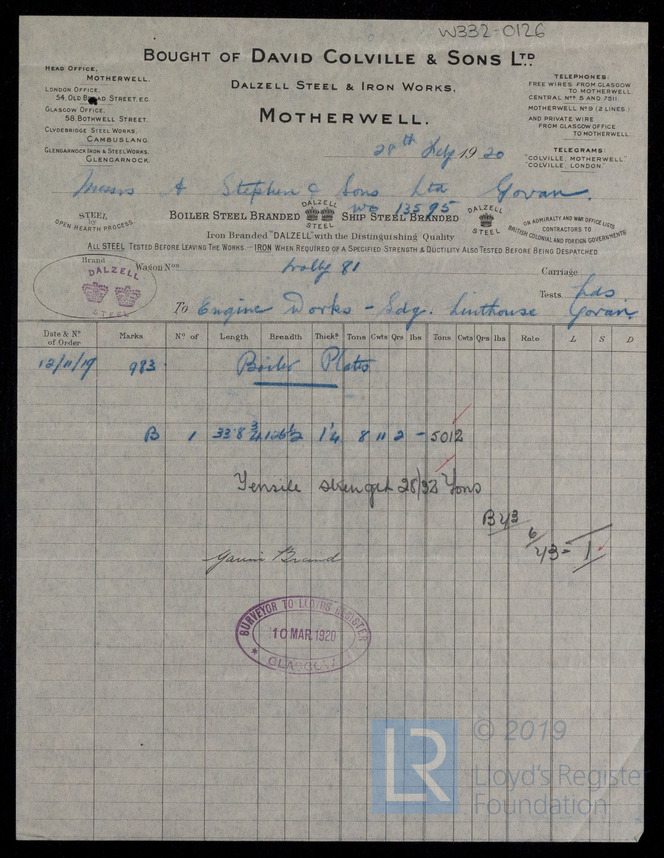 W332-0126
BOUGHT OF DAVID COLVILLE & SONS LTD.
HEAD OFFICE, MOTHERWELL.
LONDON OFFICE. 54, OLD BROAD STREET. E.C.
GLASGOW OFFICE. 58, BOTHWELL STREET.
CLYDEBRIDGE STEEL WORKS. CAMBUSLANG.
GLENGARNOCK IRON & STEEL WORKS. GLENGARNOCK.
DALZELL STEEL & IRON WORKS,
MOTHERWELL.
TELEPHONES:
FREE WIRES FROM GLASGOW
TO MOTHERWELL
CENTRAL Nos 5 AND 7511
MOTHERWELL No 9 (2 LINES)
AND PRIVATE WIRE
FROM GLASGOW OFFICE
TO MOTHERWELL.
TELEGRAMS:
"COLVILLE, MOTHERWELL"
"COLVILLE, LONDON."
28th 1920
Messrs A Stephen & Sons Ltd Govan.
No 13595
STEEL by OPEN HEARTH PROCESS.
BOILER STEEL BRANDED DALZELL STEEL SHIP STEEL BRANDED DALZELL STEEL
ON ADMIRALTY AND WAR OFFICE LISTS
CONTRACTORS TO
BRITISH COLONIAL AND FOREIGN GOVERNMENTS
Iron Branded "DALZELL" with the Distinguishing Quality
ALL STEEL TESTED BEFORE LEAVING THE WORKS.—IRON WHEN REQUIRED OF A SPECIFIED STRENGTH & DUCTILITY ALSO TESTED BEFORE BEING DESPATCHED.
Brand Wagon Nos 81 Carriage
DALZELL
STEEL
Tests Lds
To Engine Works - Sdg. Linthouse Govan.
Date & No of Order Marks No of Length Breadth Thicks Tons Cwts Qrs lbs Tons Cwts Qrs lbs Rate L S D
12/11/19 983 Boiler Plates
B 1 33·8 3/4 126 1/2 1 1/4 8 11 2 - 5012
Tensile strength 28/32 Tons
B 43
6/43 = 1
Gavin Brand
SURVEYOR TO LLOYD'S REGISTER
10 MAR. 1920
GLASGOW
LR
© 2019
Lloyd's Register
Foundation